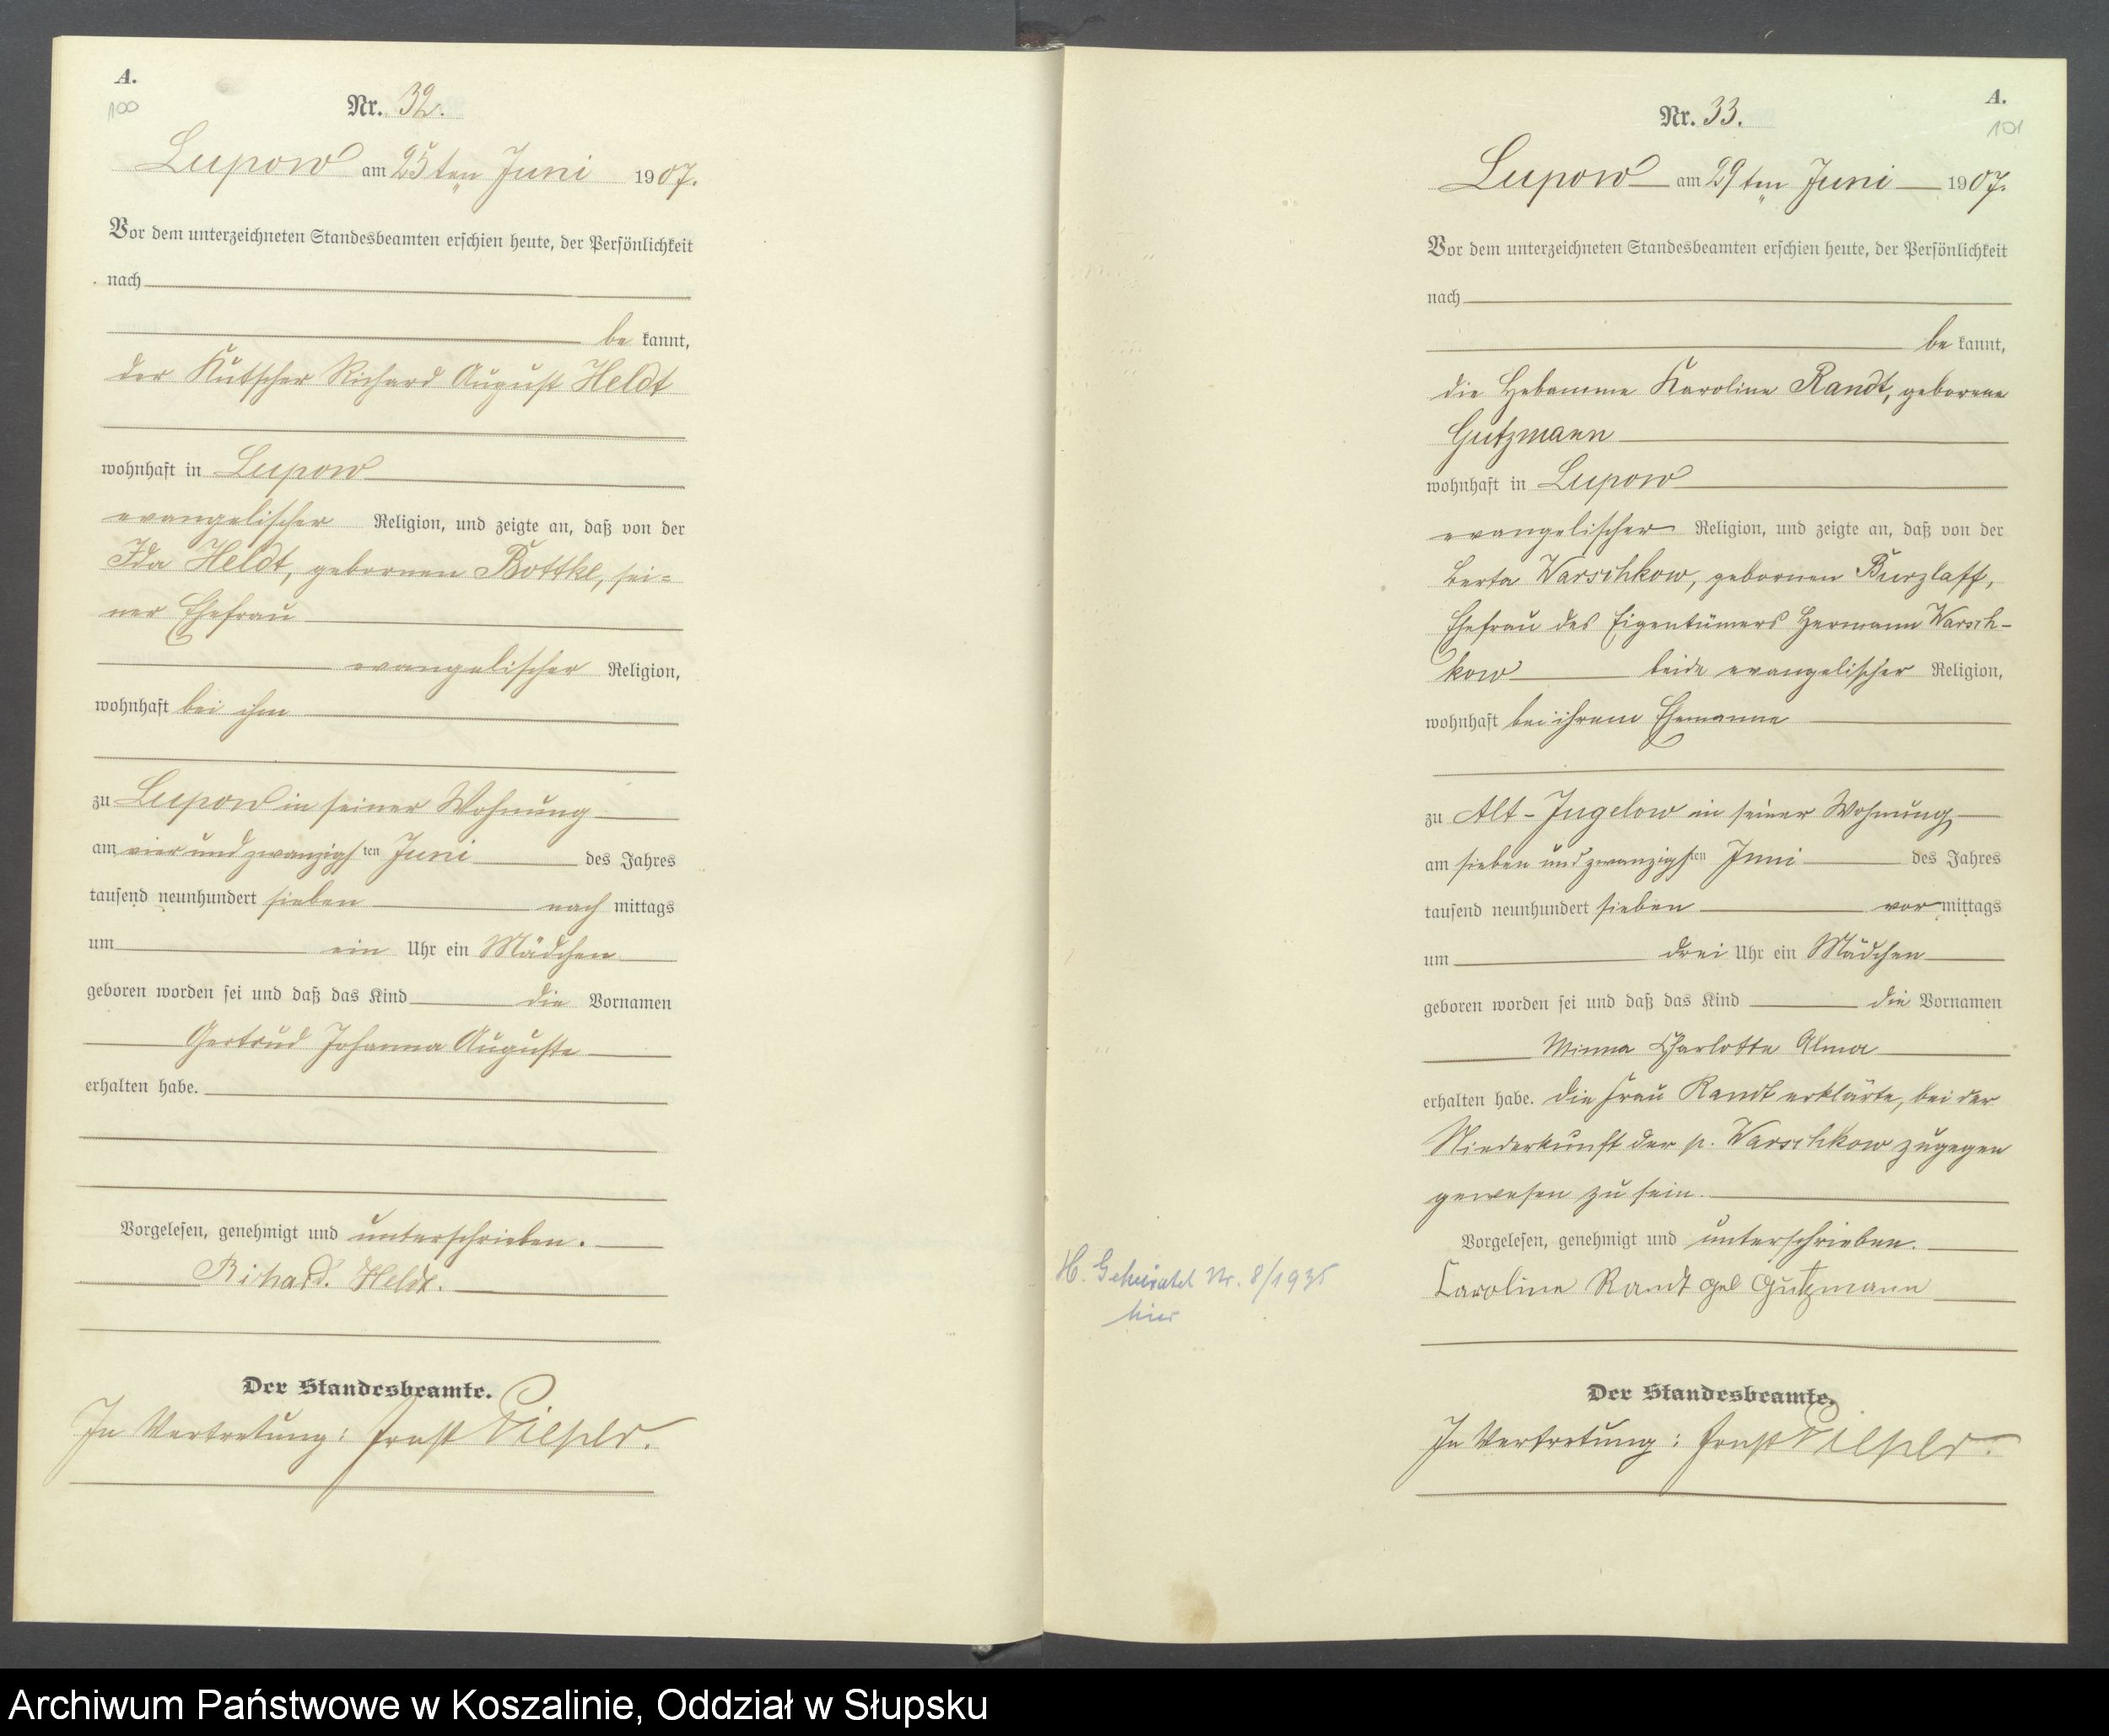 A.
100
Nr. 32.
Lupow am 25ten Juni 1907.
Vor dem unterzeichneten Standesbeamten erschien heute, der Persönlichkeit
nach
be kannt,
der Kutscher Richard August Heldt
wohnhaft in Lupow
evangelischer Religion, und zeigte an, daß von der
Ida Heldt, gebornen Bottke, sei=
ner Ehefrau
evangelischer Religion,
wohnhaft bei ihm
zu Lupow in seiner Wohnung
am vier und zwanzigsten Juni des Jahres
tausend neunhundert sieben nach mittags
um ein Uhr ein Mädchen
geboren worden sei und daß das Kind die Vornamen
Gertrud Johanna Auguste
erhalten habe.
Vorgelesen, genehmigt und unterschrieben.
Richard. Heldt.
Der Standesbeamte.
In Vertretung: Ernst
A.
101
Nr. 33.
Lupow am 29ten Juni 1907.
Vor dem unterzeichneten Standesbeamten erschien heute, der Persönlichkeit
nach
be kannt,
die Hebamme Karoline Randt, geborene
Gutzmann
wohnhaft in Lupow
evangelischer Religion, und zeigte an, daß von der
Berta Warschkow, gebornen Burzlaff,
Ehefrau des Eigentümers Hermann Warsch-
kow beide evangelischer Religion,
wohnhaft bei ihrem Ehemanne
zu Alt-Jugelow in seiner Wohnung
am sieben und zwanzigsten Juni des Jahres
tausend neunhundert sieben vor mittags
um drei Uhr ein Mädchen
geboren worden sei und daß das Kind die Vornamen
Minna Charlotte Alma
erhalten habe. Die Frau Randt erklärte, bei der
Niederkunft der p. Warschkow zugegen
gewesen zu sein.
Vorgelesen, genehmigt und unterschrieben.
Caroline Randt geb Gutzmann
Der Standesbeamte.
In Vertretung: Ernst
H. Geheiratet Nr. 8/1935
hier
Archiwum Państwowe w Koszalinie, Oddział w Słupsku